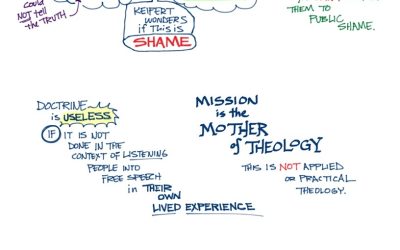 could
NOT tell
the TRUTH
KEIFERT
WONDERS
if THIS is
SHAME
THEM to
PUBLIC
SHAME.
DOCTRINE
is USELESS
IF IT IS NOT
DONE IN THE
CONTEXT OF LISTENING
PEOPLE INTO
FREE SPEECH
in THEIR
OWN
LIVED EXPERIENCE
MISSION
is the
MOTHER
of THEOLOGY
THIS IS NOT APPLIED
OR PRACTICAL
THEOLOGY.